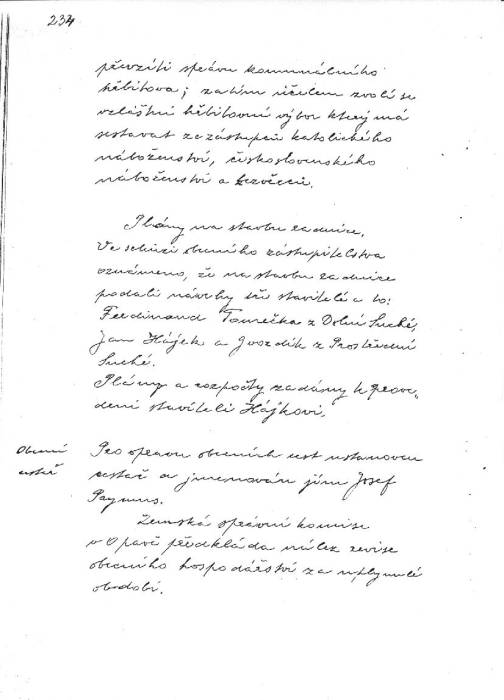 234
převzíti správu komunálního
hřbitova; za tím účelem zvolí se
vzláštní hřbitovní výbor který má
sestavat ze zástupců katolického
náboženství, československého
náboženství a bezvěrců.
Plány na stavbu radnice.
Ve schůzi obecního zástupitelstva
oznámeno, že na stavbu radnice
podali návrhy tři stavitelé a to:
Ferdinand Tomečka z Dolní Suché,
Jan Hájek a Gvozdík z Prostřední
Suché.
Plány a rozpočty zadány k prove-
dení staviteli Hájkovi.
Obecní
cestář
Pro opravu obecních cest ustanoven
cestář a jmenován jím Josef
Žemská správní komise
v Opavě předkládá nález revise
obecního hospodářství za uplynulé
období.